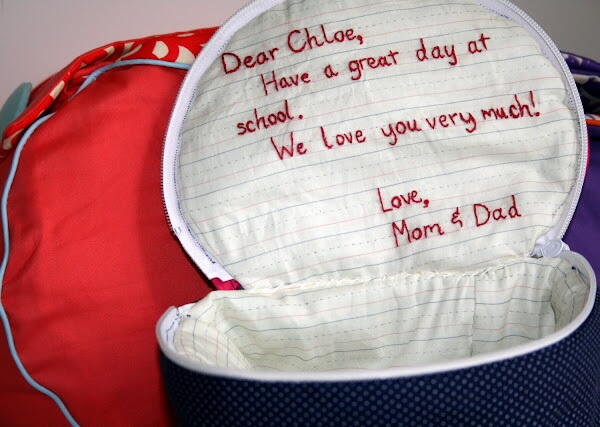 Dear Chloe,
Have a great day at
school.
We love you very much!
Love,
Mom & Dad